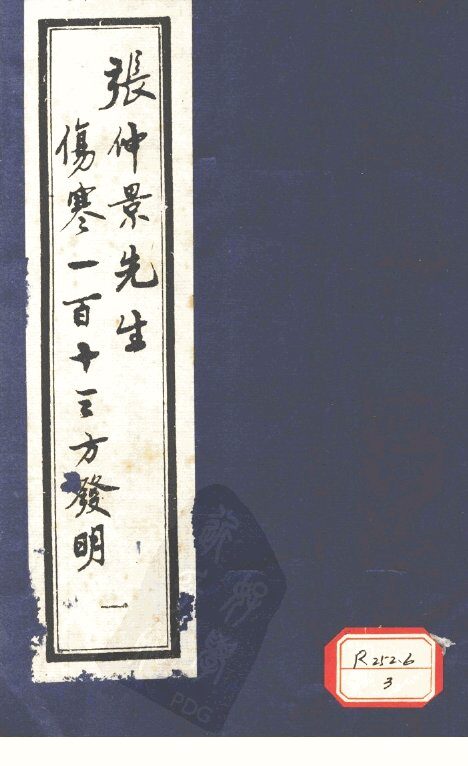 張仲景先生
傷寒一百十三方發明
一
R252.6
3
PDG